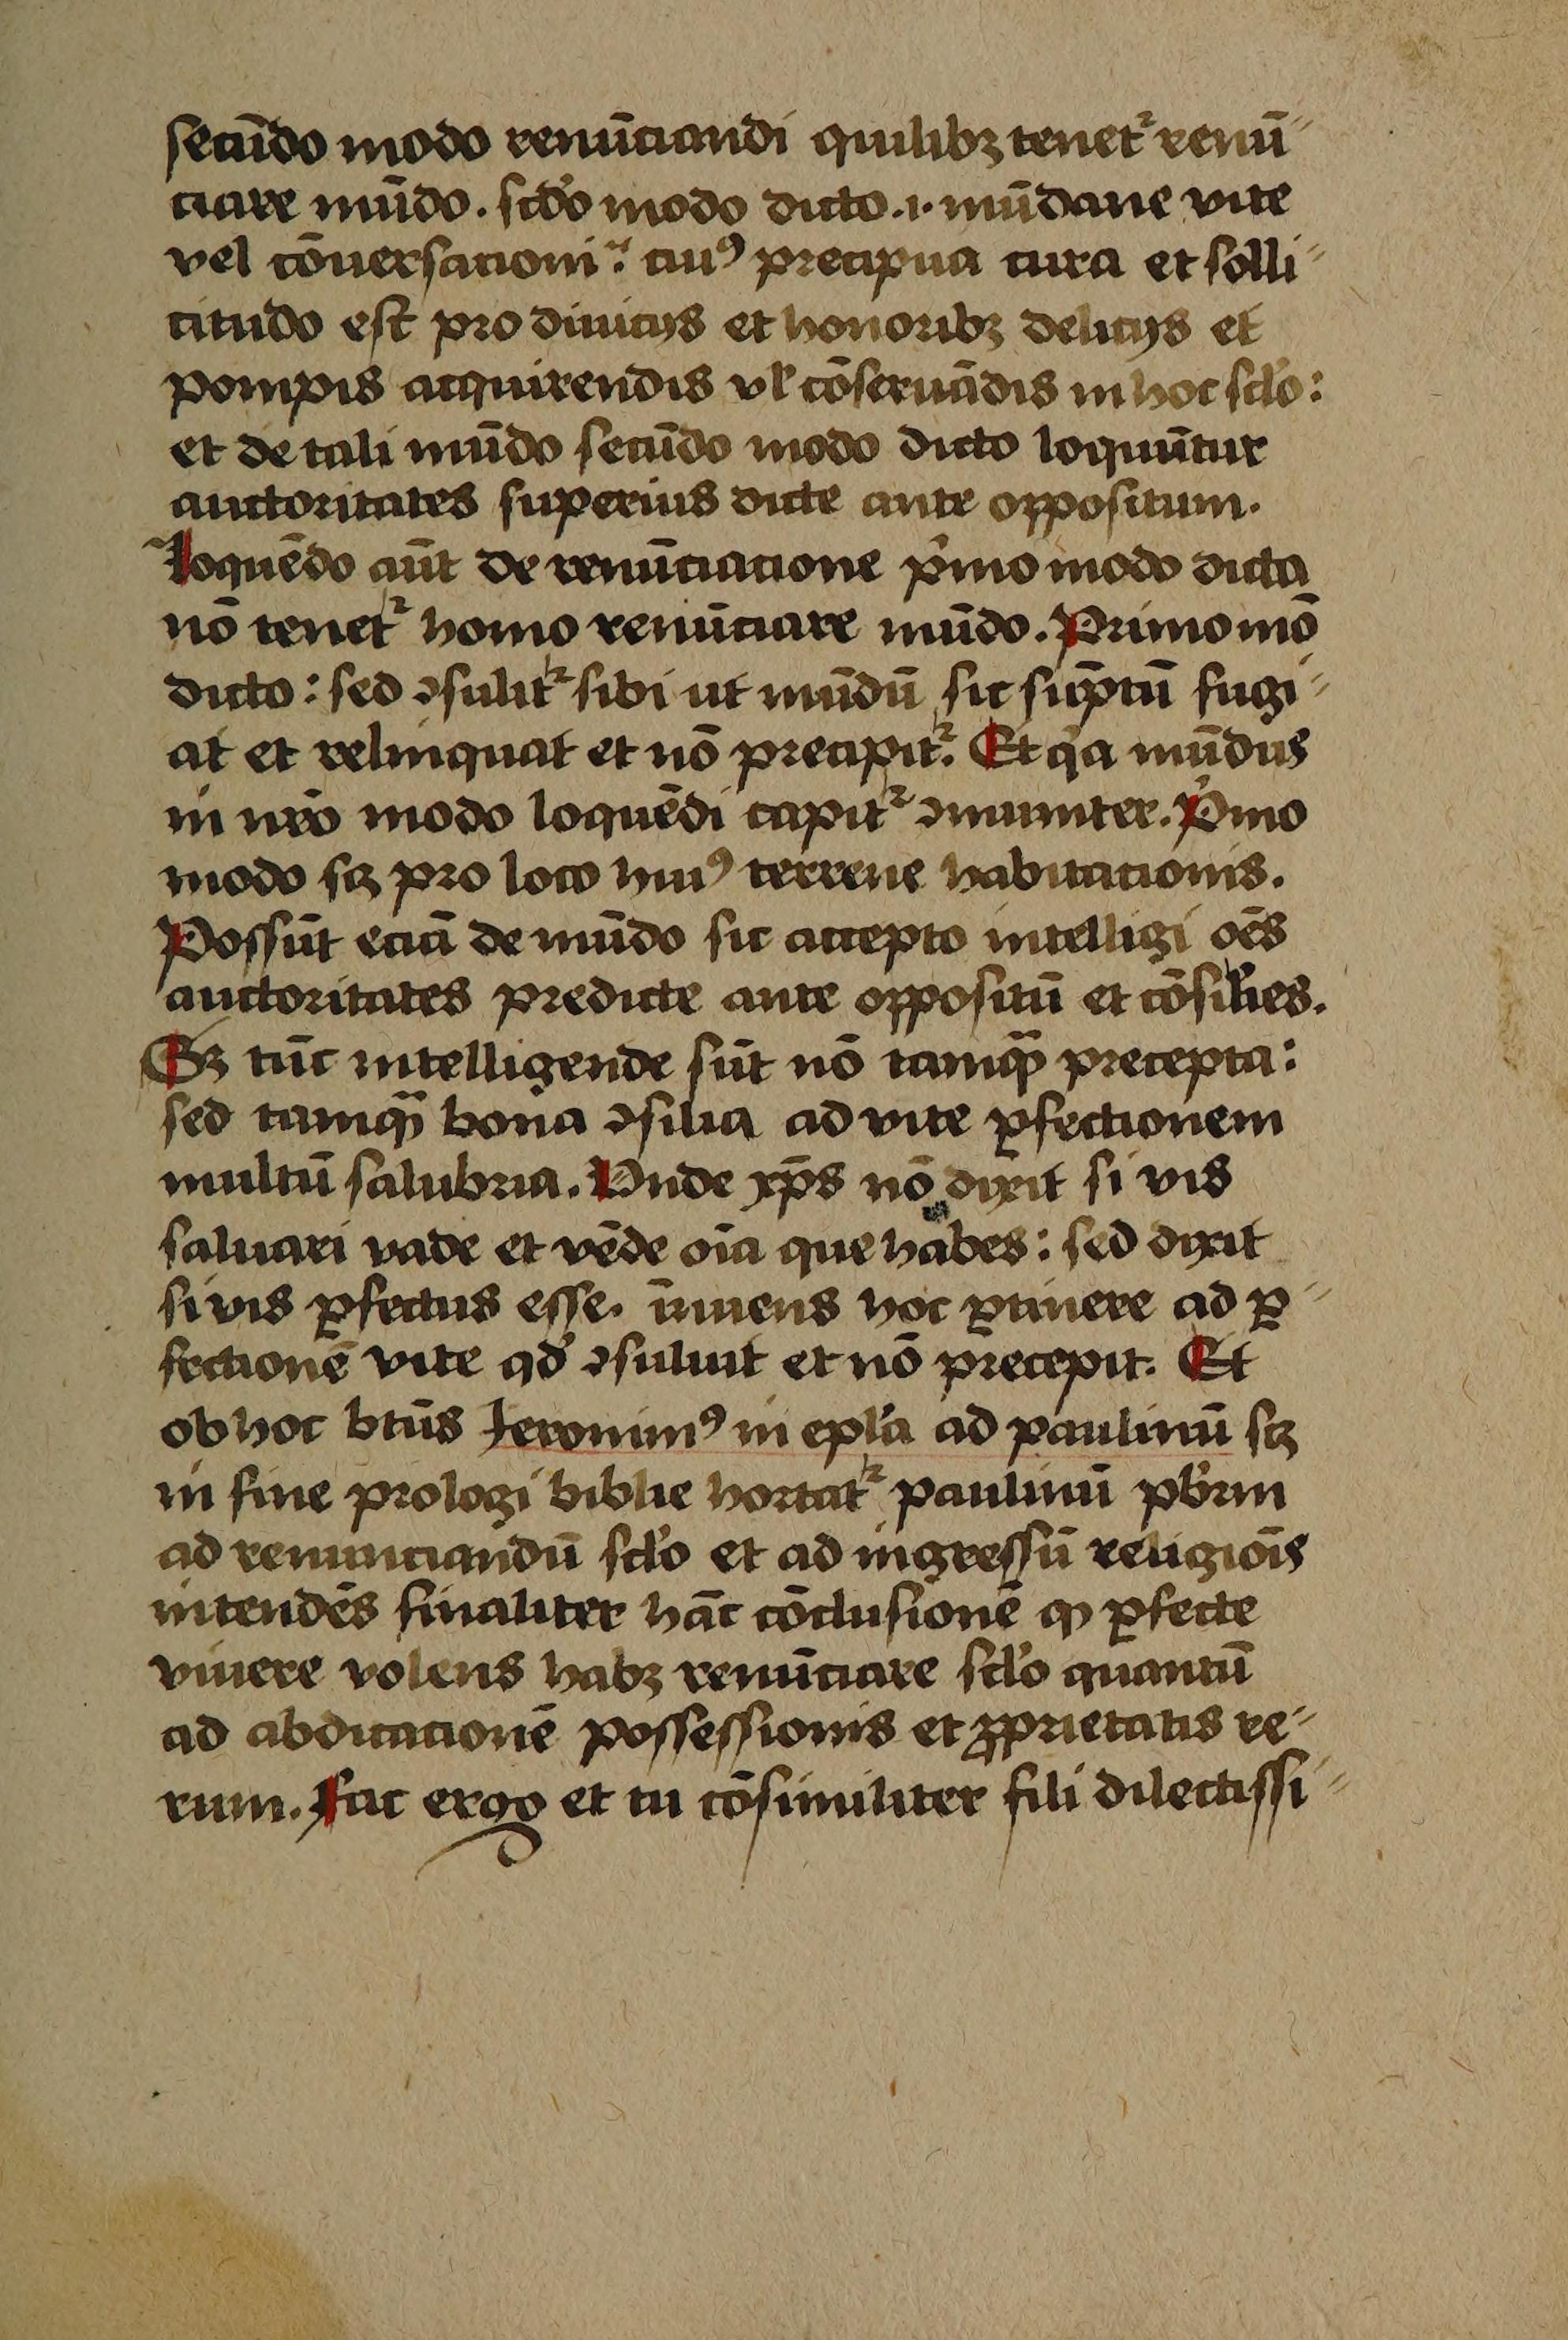 secūdo modo renūciandi quilibꝫ tenetᷣ renū⸗
ciare mūdo. scd̕o modo dicto .i. mūdane vite
vel cōuersacioni᷑: cuiꝰ precipua cura et solli⸗
citudo est pro diuicijs et honoribꝫ delicijs et
pompis acquirendis vl̕ cōseruādis in hoc scl̕o:
et de tali mūdo secūdo modo dicto loquūtur
auctoritates superius dicte ante oppositum.
Loquēdo aūt de renūciacione p̕mo modo dicta
nō tenetᷣ homo renūciare mūdo. Primo mō
dicto: sed ↄsulitᷣ sibi ut mūdū sic sūptū fugi⸗
at et relinquat et nō precipitᷣ. Et q̕a mūdus
in nr̄o modo loquēdi capitᷣ ↄmuniter. P̕mo
modo scꝫ pro loco huiꝰ terrene habitacionis.
Possūt eciā de mūdo sic accepto intelligi oēs
auctoritates predicte ante oppositū et cōsil̕ies.
Sꝫ tūc intelligende sūt nō tamqᷓ precepta:
sed tamqᷓ bona ↄsilia ad vite ꝑfectionem
multū salubria. Vnde xp̄s nō dixit si vis
saluari vade et vēde oīa que habes: sed dixit
si vis ꝑfectus esse. īnuens hoc ꝑtinere ad ꝑ⸗
fectionē vite qd̕ ↄsuluit et nō precepit. Et
ob hoc btūs Jeronimꝰ in epl̕a ad paulinū scꝫ
in fine prologi biblie hortatᷣ paulinū pb̕rm
ad renunciandū scl̕o et ad ingressū religiōis
intendēs finaliter hāc cōclusionē ꝙ ꝑfecte
viuere volens habꝫ renūciare scl̕o quantū
ad abdicacionē possessionis et ꝓprietatis re⸗
rum. Fac ergo et tu cōsimiliter fili dilectissi⸗